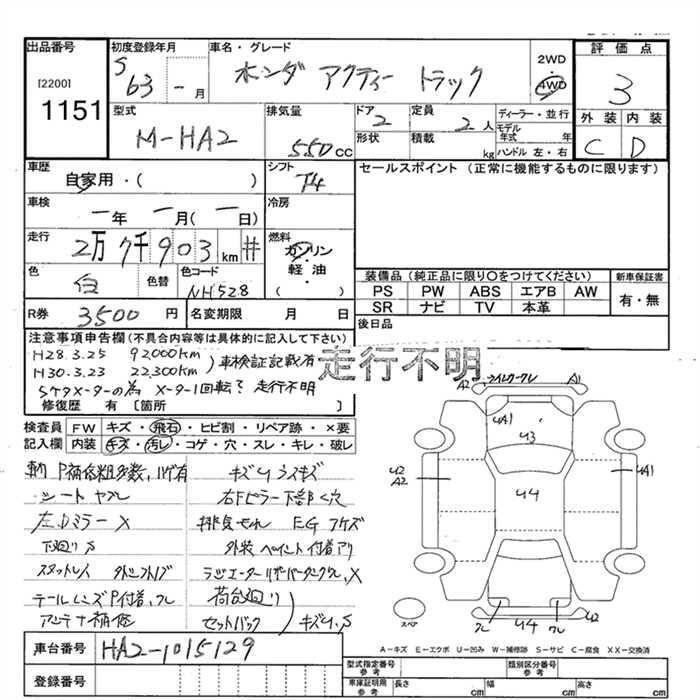 出品番号
[2200]
1151
初度登録年月
S63 - 月
車名・グレード
ホンダ アクティー トラック
2WD
・
4WD
評価点
3
外装 内装
C D
型式
M-HA2
排気量
550 CC
ドア
2
定員
2 人
形状
積載
kg
ディーラー・並行
モデル年式 年
ハンドル 左・右
車歴
自家用・( )
シフト
F4
セールスポイント (正常に機能するものに限ります)
車検
一年 一月(一日)
冷房
走行
2万 7千 903 km #
燃料
ガソリン
軽油
( )
色
白
色替
色コード
NH528
装備品(純正品に限り〇をつけてください)
PS PW ABS エアB AW
SR ナビ TV 本革
新車保証書
有・無
R券
3500 円
名変期限 月 日
後日品
注意事項申告欄(不具合内容等は具体的に記入して下さい)
H28.3.25 92,000km
H30.3.23 22,300km ) 車検証記載有
5ケタメーターの為 メーター1回転? 走行不明
走行不明
修復歴 有 [箇所 ]
検査員記入欄
FW キズ・飛石・ヒビ割・リペア跡・×要
内装 キズ・汚レ・コゲ・穴・スレ・キレ・破レ
P補修粗多数、ハゲ有
シートヤブレ
左Dミラー X
下廻りS
テールレンズP付着、ワレ
アンテナ補修
キズUウスキズ
右Fピラー下部く穴
排気もれ EG
外装 ペイント付着アリ
荷台廻り
セットバック ) キズU、S
A2
A1
UA1
U3
U2
A2
U4
UA1
スペ
ワレ
U4
ワレ
U2
A-キズ E-エクボ U-凹み W-補修跡 S-サビ C-腐食 XX-交換済
車台番号
HA2-1015129
登録番号
型式指定番号
参考
類別区分番号
参考
車庫証明用
参考
長さ cm 幅 cm 高さ cm